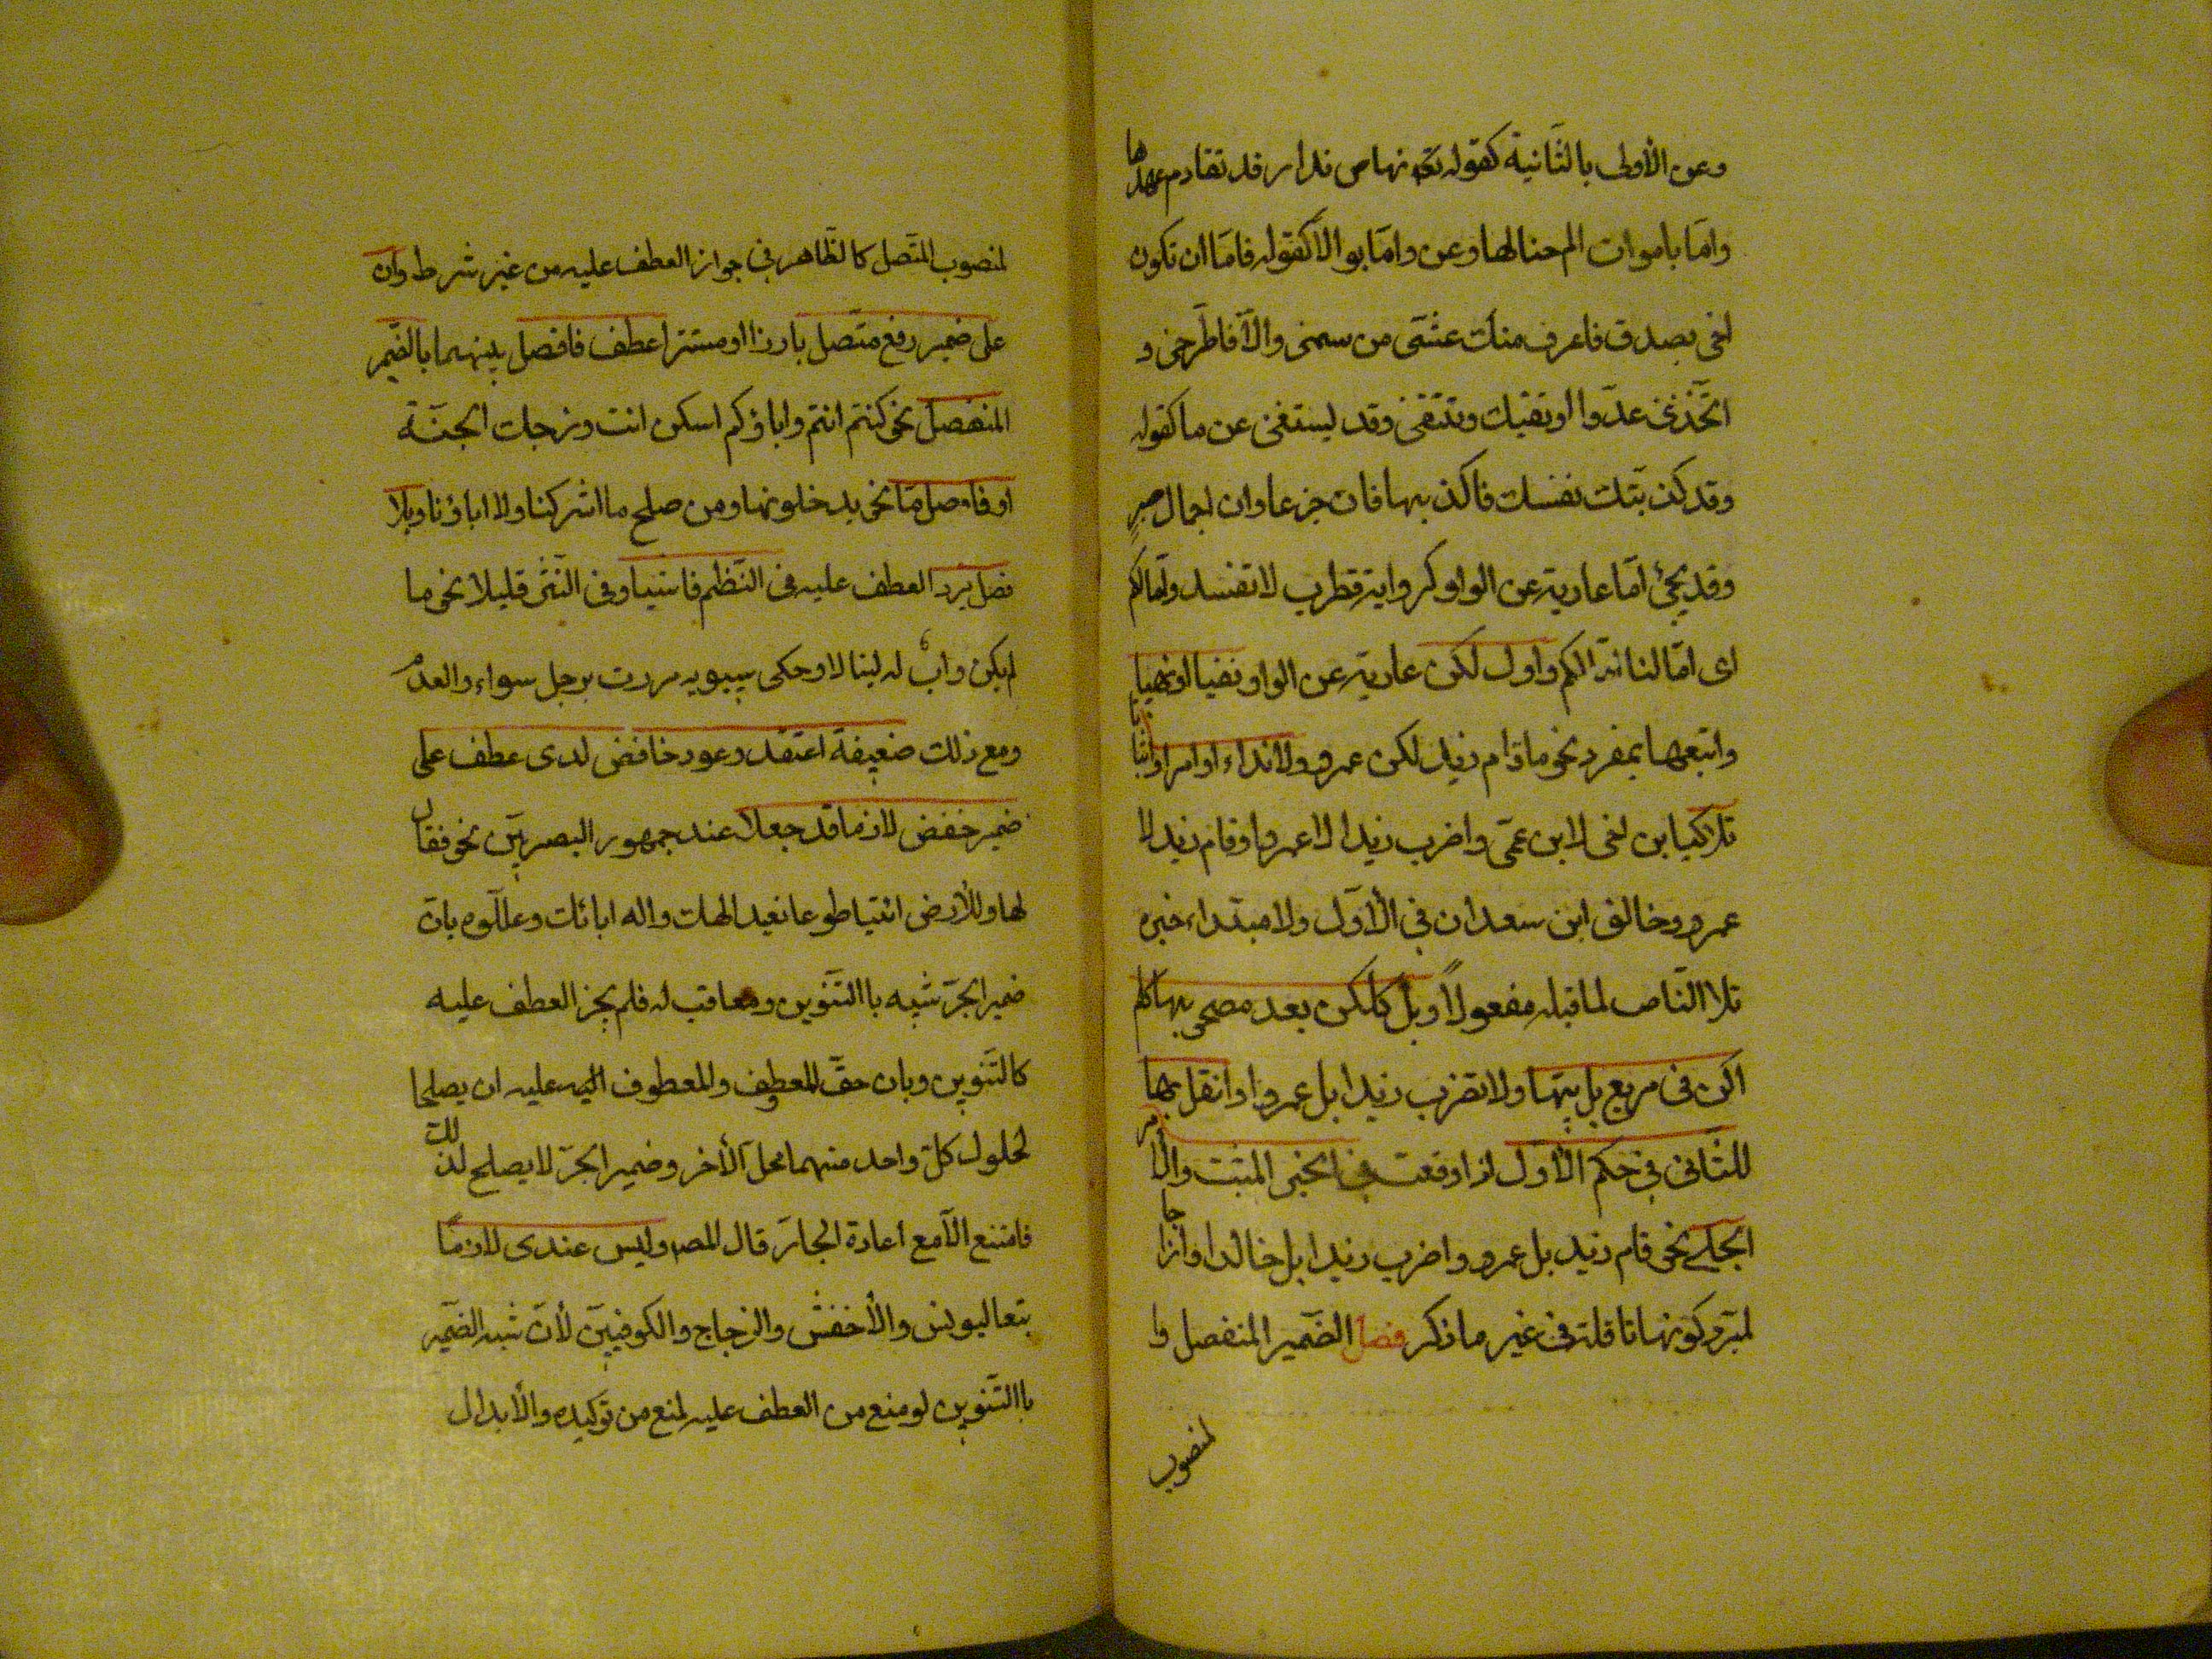 وعن الأولى بالثانية كقوله تعه نهاص ندار قد تقادم عهدها
وامّا باموات الم حنالها وعن وامّا بوالّا كقوله فامّا ان تكون
اخى بصدق فاعرف منك غثى من سمنى والّا فاطرحنى و
اتخذنى عدوا اوتقيك وتتقنى وقد ليستغنى عن ما كقوله
وقد كذبتك نفسك فاكذبها فان جزعا وان اجمال صبر
وقد يجئ امّا عارية عن الواو كرواية قطرب لا تفسدوا آبالكم
اى امّا لنا امّا لكم واول لكن عارية عن الواو نفيا او نهيا
واتبعها بمفرد نحو ما قام زيد لكن عمرو ولا نداء او امرا او اثباتا
تلا كيابن اخى لا ابن عمّى واضرب زيدا لا عمروا وقام زيد لا
عمرو وخالف ابن سعدان فى الأوّل ولا مبتداء خبره
تلا الناص لما قبله مفعولًا وبل كلكن بعد مصحوبيها كلم
اكن فى مربع بل تيها ولا تضرب زيدا بل عمروا وانقل بها
للثّانى فى حكم الأوّل اذا وقعت فى الخبر المثبت والأمر
الجلى نحو قام زيد بل عمرو واضرب زيدا بل خالدا واجاز
المبرد كونها ناقلة فى غير ما ذكر فصل الضّمير المنفصل وا
لمنصوب
لمنصوب المتّصل كالظّاهر فى جواز العطف عليه من غير شرط وان
على ضمير رفع متّصل بارزا او مستترا عطف فافصل بينهما بالضّمير
المنفصل نحو كنتم انتم واباؤكم اسكن انت وزوجك الجنّة
او فاصل مّا نحو يدخلونها ومن صلح ما اشركنا ولا اباؤنا وبلا
فصل يرد العطف عليه فى النّظم فاشيا وفى النّثر قليلا نحو ما
لم يكن واب له لينالا وحكى سيبويه مررت برجل سواء والعدم
ومع ذلك ضعيفة اعتقد وعود خافض لدى عطف على
ضمير خفض لازما قد جعلا عند جمهور البصريّين نحو فقال
لها وللأرض ائتيا طوعا نعبد الهك واله ابائك وعللّوه بانّ
ضمير الجرّ شبه باالتّنوين ومعاقب له فلم يجز العطف عليه
كالتّنوين وبان حقّ المعطوف والمعطوف عليه ان يصلحا
لحلول كلّ واحد منهما محلّ الأخر وضمير الجرّ لا يصلح لذلك
فامتنع الّا مع اعادة الجارّ قال المصه وليس عندى لازمًا
تبعا ليونس والأخفش والزجاج والكوفيّين لأنّ شبه الضّمير
باالتّنوين لو منع من العطف عليه لمنع من توكيده والأبدال